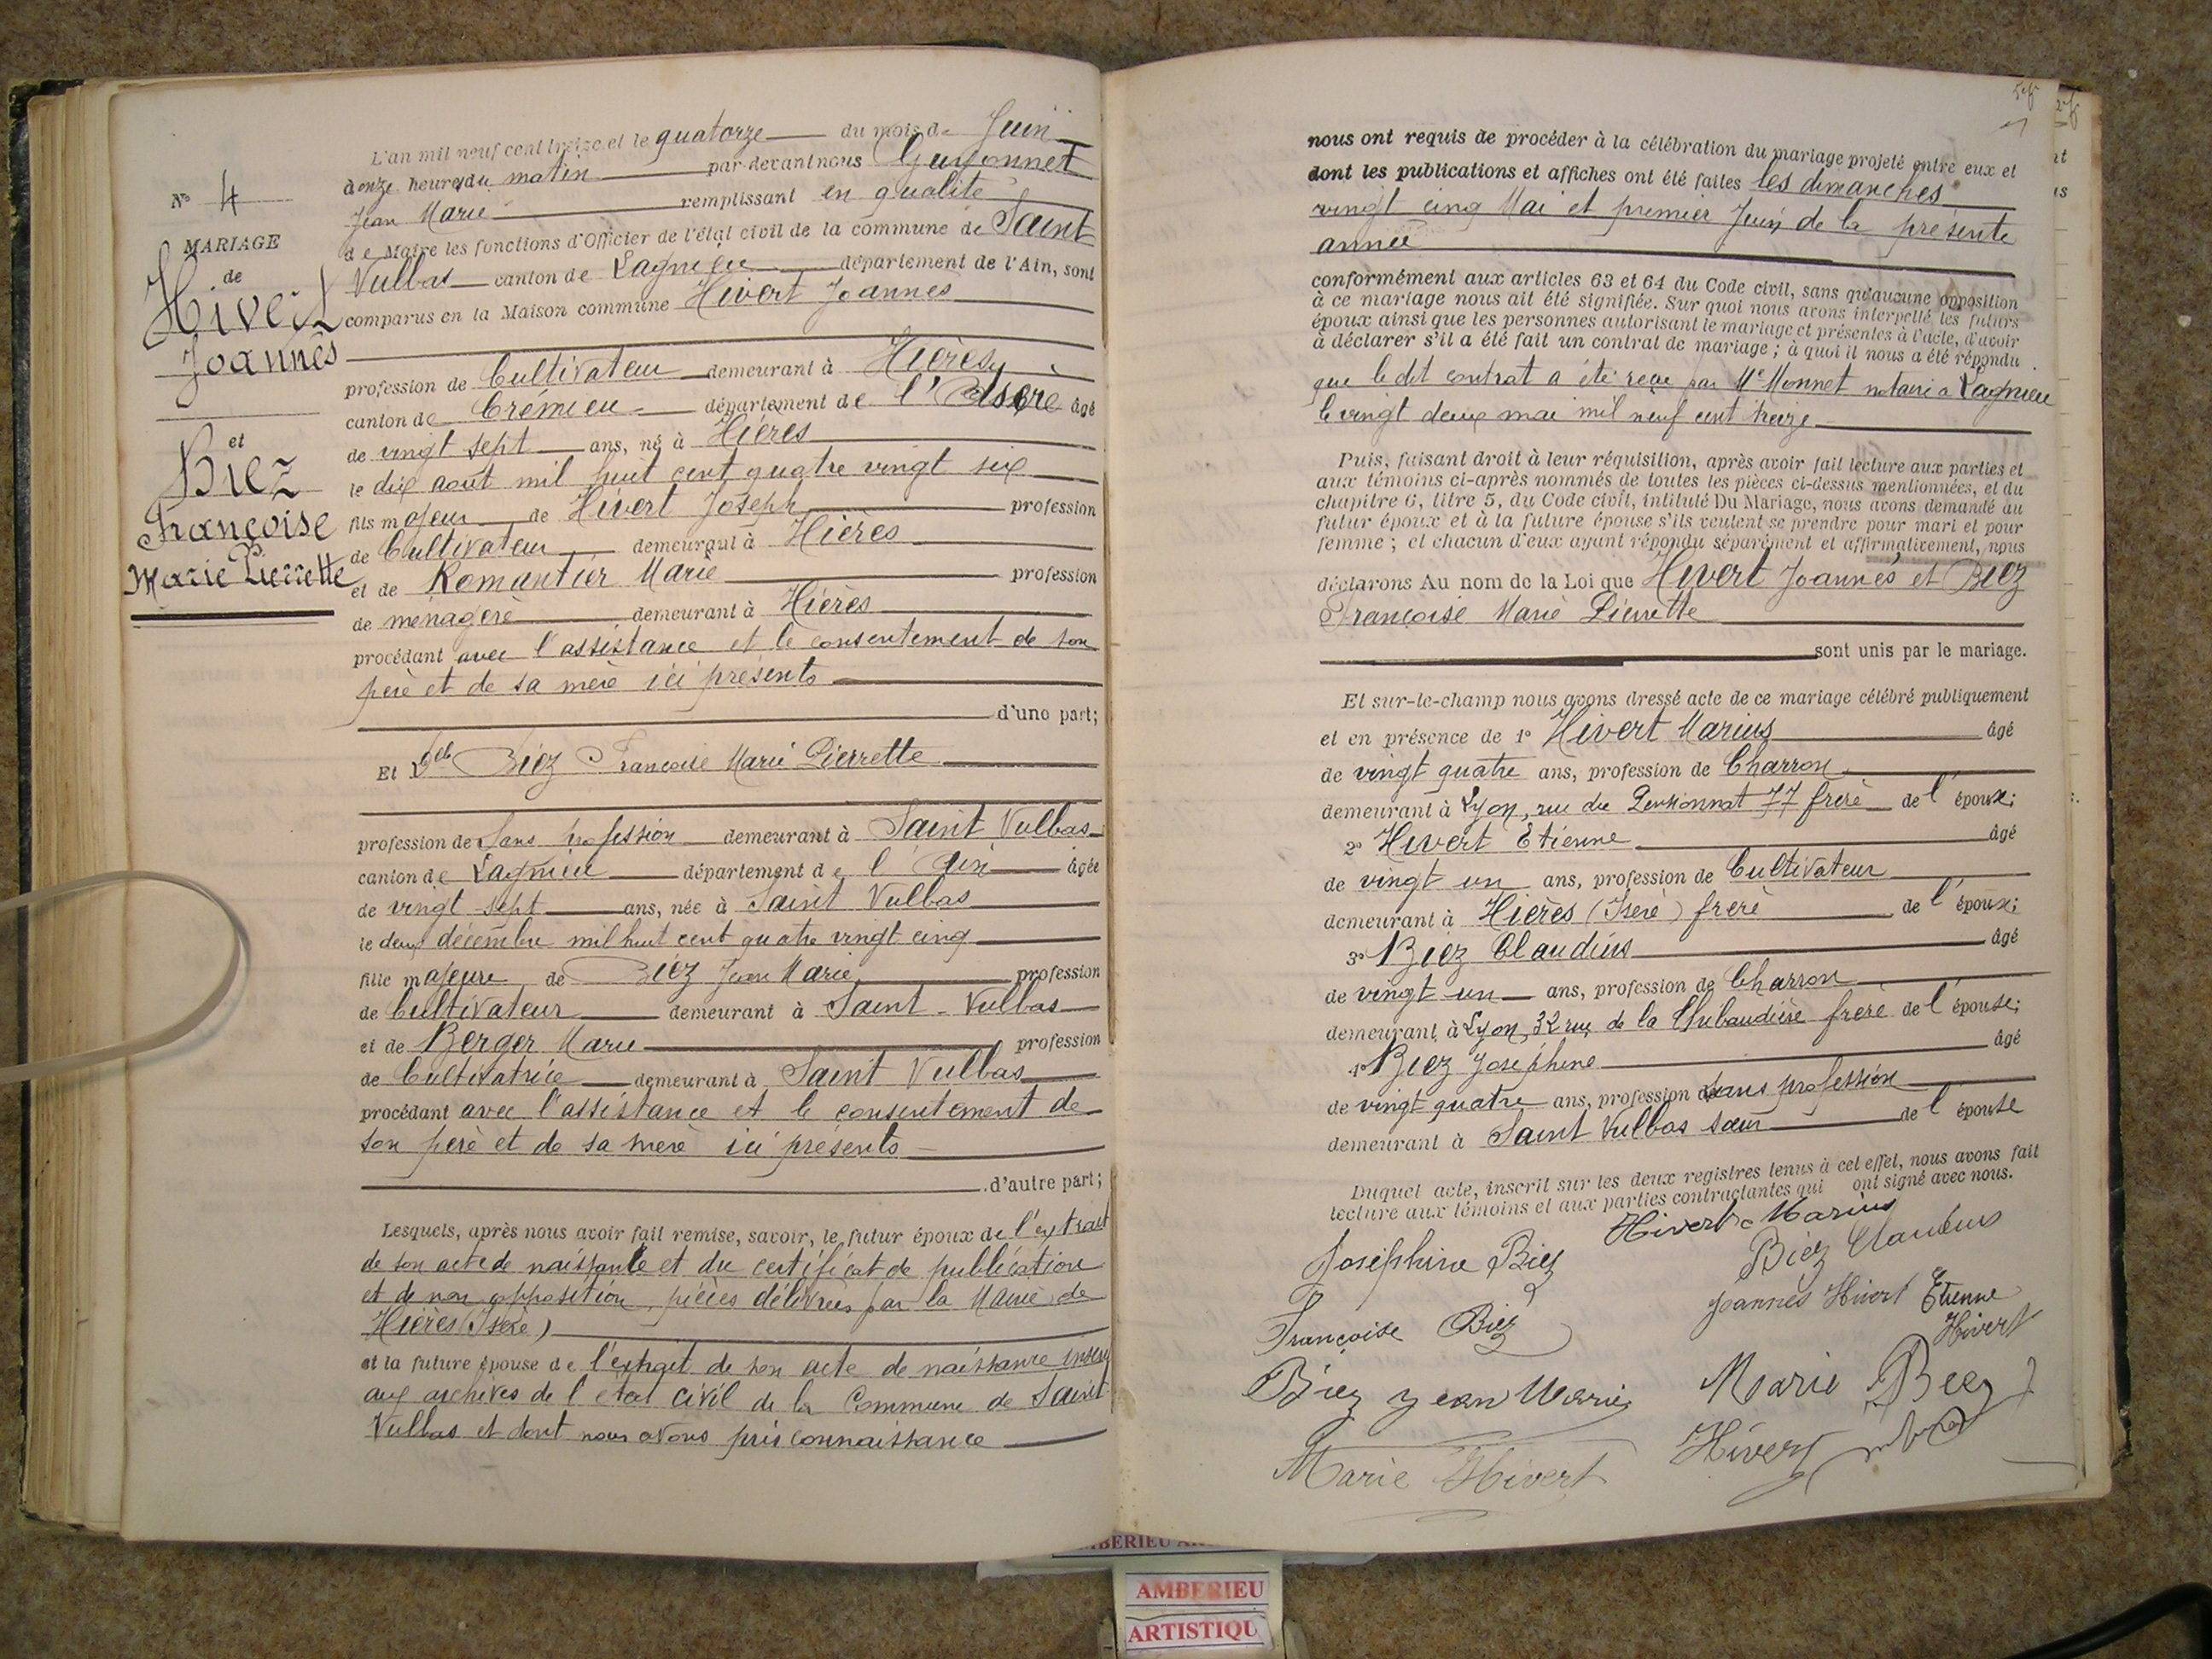 N° 4
MARIAGE
de
Hivert
Joannès
et
Biez
Françoise
Marie Pierrette
L'an mil neuf cent treize et le quatorze du mois de Juin
à onze heures du matin par-devant nous Guyonnet
Jean Marie remplissant en qualité
de Maire les fonctions d'Officier de l'état civil de la commune de Saint
Vulbas canton de Lagnieu département de l'Ain, sont
comparus en la Maison commune Hivert Joannes
profession de Cultivateur demeurant à Hières
canton de Crémieu département de l'Isère âgé
de vingt sept ans, né à Hières
le dix août mil huit cent quatre vingt six
fils majeur de Hivert Joseph profession
de Cultivateur demeurant à Hières
et de Romantier Marie profession
de ménagère demeurant à Hières
procédant avec l'assistance et le consentement de son
père et de sa mère ici présents
d'une part;
Et Delle Biez Françoise Marie Pierrette
profession de Sans profession demeurant à Saint Vulbas
canton de Lagnieu département de l'Ain âgée
de vingt sept ans, née à Saint Vulbas
le deux décembre mil huit cent quatre vingt cinq
fille majeure de Biez Jean Marie profession
de Cultivateur demeurant à Saint-Vulbas
et de Berger Marie profession
de Cultivatrice demeurant à Saint Vulbas
procédant avec l'assistance et le consentement de
son père et de sa mère ici présents
d'autre part;
Lesquels, après nous avoir fait remise, savoir, le futur époux de l'extrait
de son acte de naissance et du certificat de publication
et de non opposition, pièces délivrées par la Mairie de
Hières (Isère)
et la future épouse de l'extrait de son acte de naissance inscrit
aux archives de l'état civil de la Commune de Saint
Vulbas et dont nous avons pris connaissance
nous ont requis de procéder à la célébration du mariage projeté entre eux et
dont les publications et affiches ont été faites les dimanches
vingt cinq Mai et premier Juin de la présente
année
conformément aux articles 63 et 64 du Code civil, sans qu'aucune opposition
à ce mariage nous ait été signifiée. Sur quoi nous avons interpellé les futurs
époux ainsi que les personnes autorisant le mariage et présentes à l'acte, d'avoir
à déclarer s'il a été fait un contrat de mariage; à quoi il nous a été répondu
que le dit contrat a été reçu par Me Monnet notaire à Lagnieu
le vingt deux mai mil neuf cent treize
Puis, faisant droit à leur réquisition, après avoir fait lecture aux parties et
aux témoins ci-après nommés de toutes les pièces ci-dessus mentionnées, et du
chapitre 6, titre 5, du Code civil, intitulé Du Mariage, nous avons demandé au
futur époux et à la future épouse s'ils veulent se prendre pour mari et pour
femme; et chacun d'eux ayant répondu séparément et affirmativement, nous
déclarons Au nom de la Loi que Hivert Joannès et Biez
Françoise Marie Pierrette
sont unis par le mariage.
Et sur-le-champ nous avons dressé acte de ce mariage célébré publiquement
et en présence de 1° Hivert Marius âgé
de vingt quatre ans, profession de Charron
demeurant à Lyon, rue du Pensionnat 77 frère de l'époux;
2° Hivert Etienne âgé
de vingt un ans, profession de Cultivateur
demeurant à Hières (Isère) frère de l'époux;
3° Biez Claudius âgé
de vingt un ans, profession de Charron
demeurant à Lyon, 32 rue de la frère de l'épouse;
4° Biez Joséphine âgé
de vingt quatre ans, profession sans profession
demeurant à Saint Vulbas sœur de l'épouse
Duquel acte, inscrit sur les deux registres tenus à cet effet, nous avons fait
lecture aux témoins et aux parties contractantes qui ont signé avec nous.
Hivert Marius
Joséphine Biez
Biez Claudius
Joannès Hivert Etienne
Hivert
Françoise Biez
Biez Jean Marie
Marie Biez
Marie Hivert
Hivert
AMBERIEU
ARTISTIQU